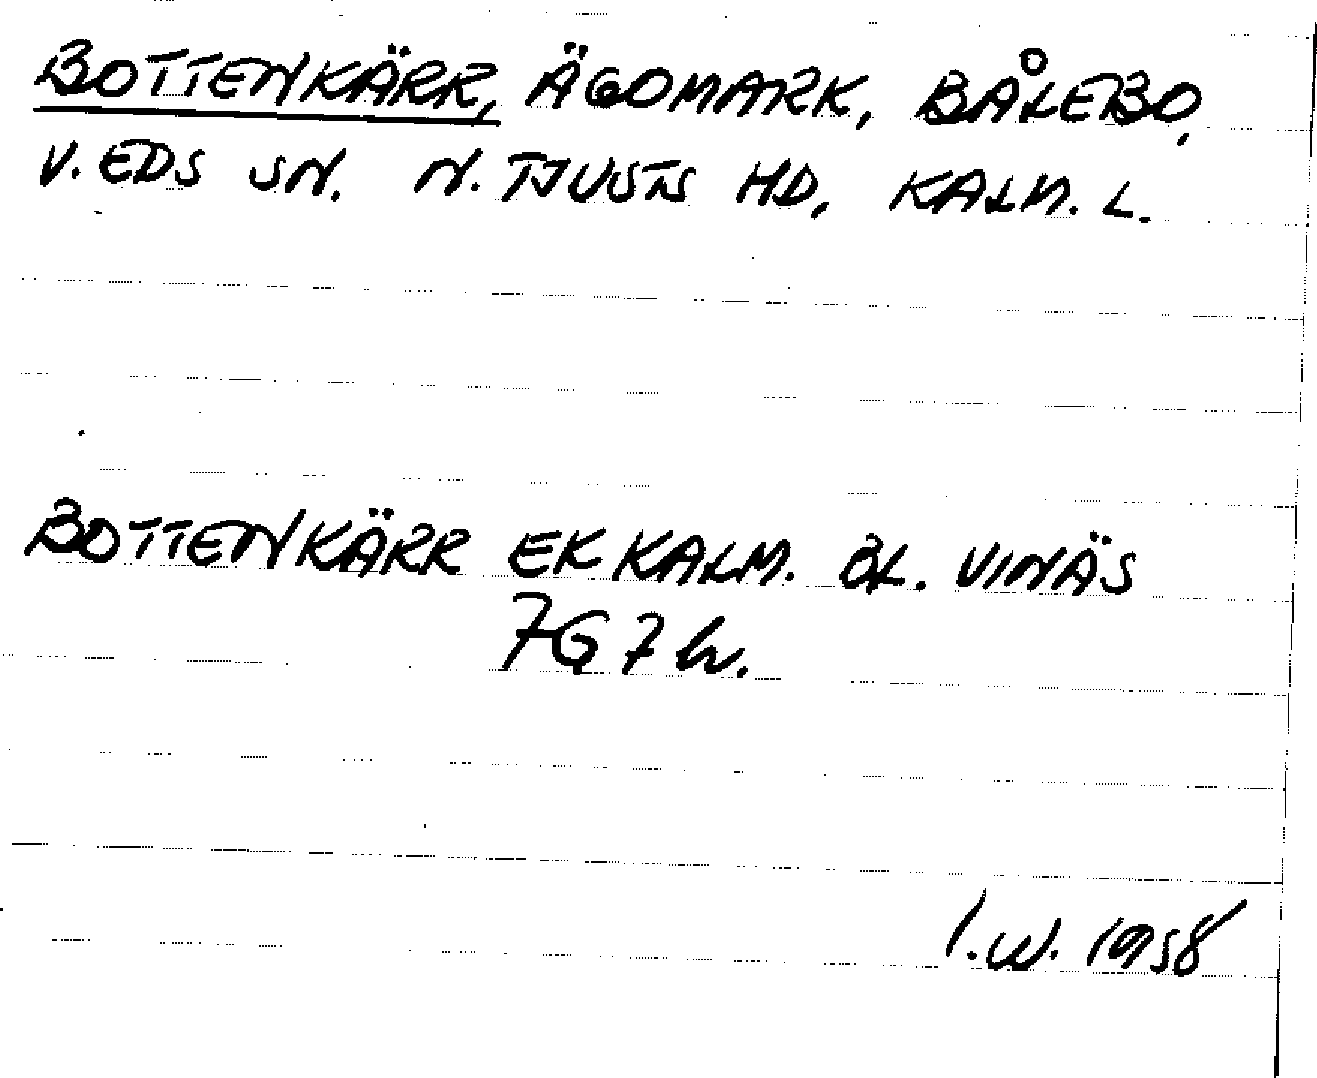 BOTTENKÄRR, ÄGOMARK, BÅLEBO,
V. EDS SN. N. TJUSTS HD, KALM. L.
BOTTENKÄRR EK KALM. BL. VINÄS
7G 7h.
I.W. 1958